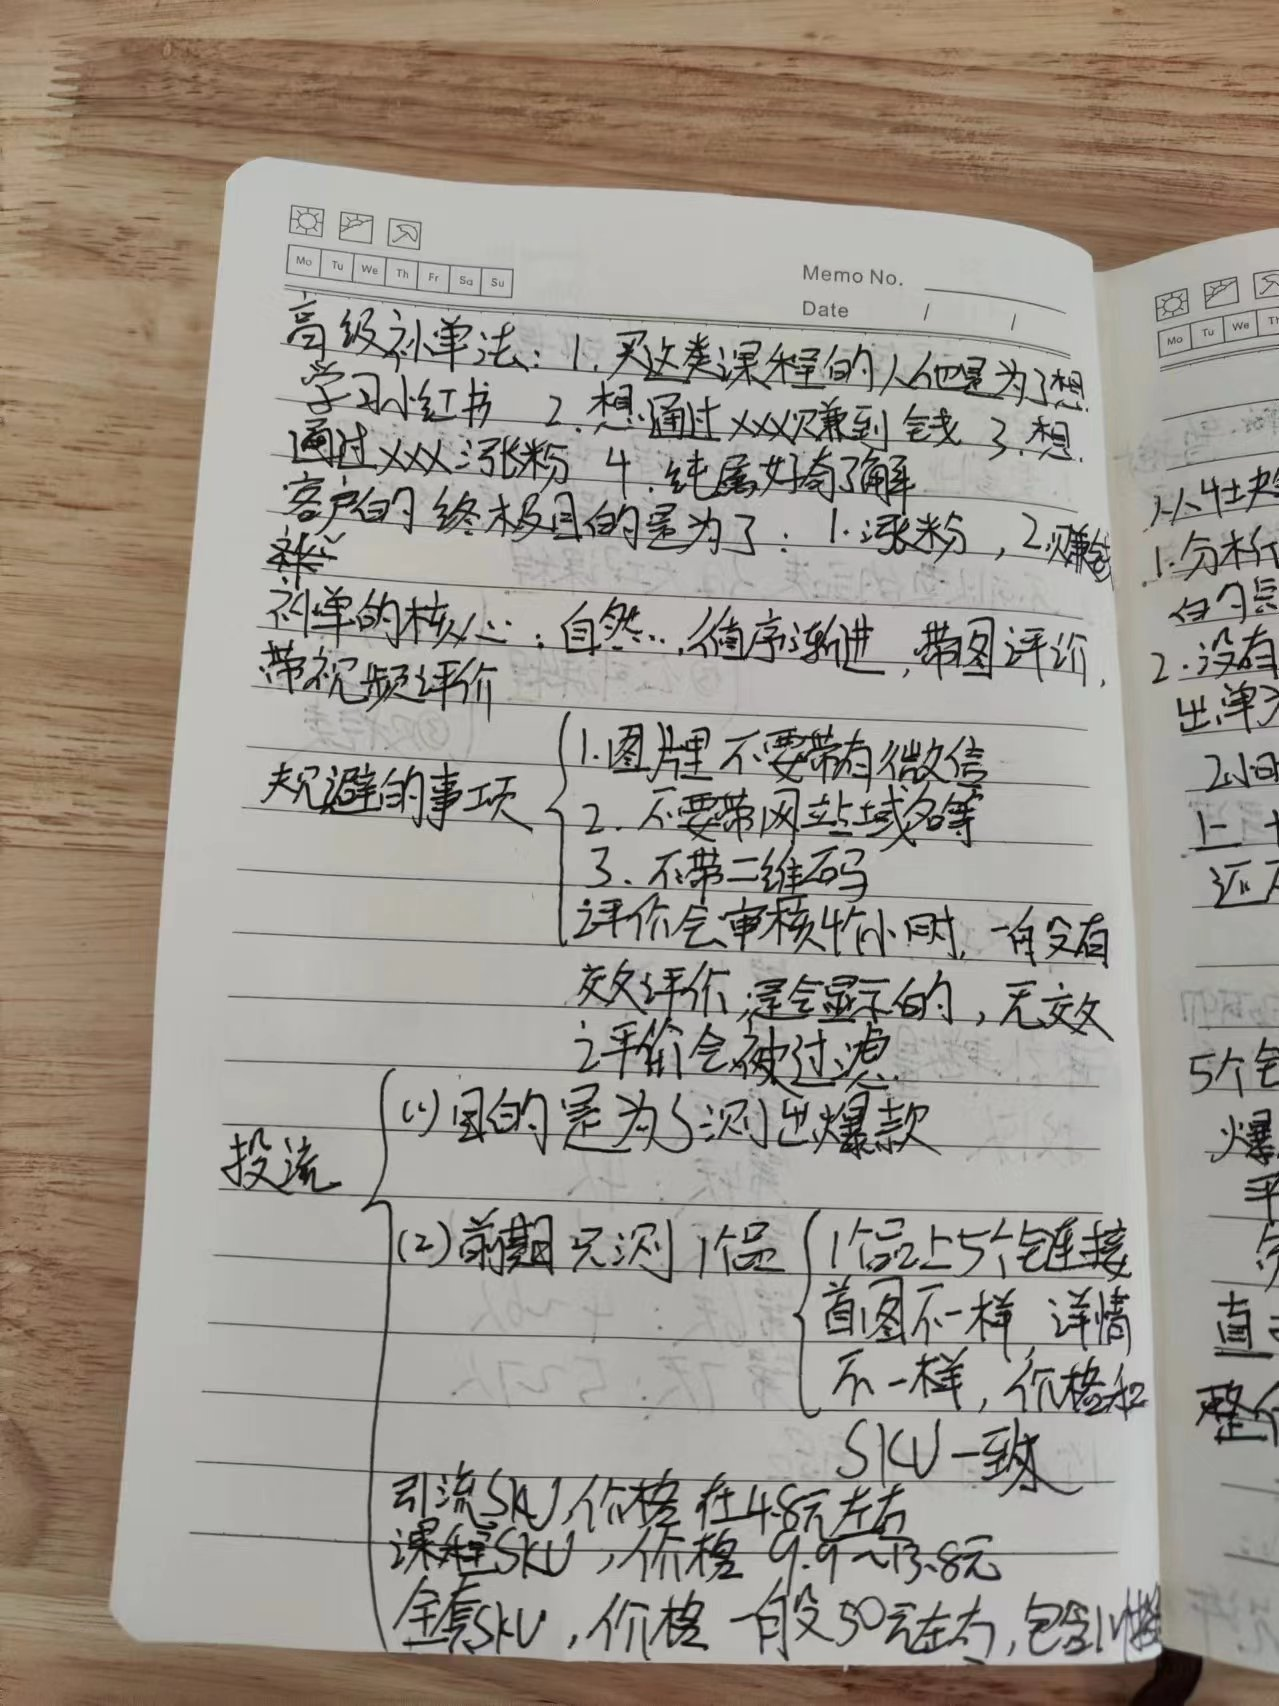 Mo Tu We Th Fr Sa Su
Memo No.
Date / /
高级补单法：1.买这类课程的人他是为了想
学习小红书 2.想通过xxx赚到钱 3.想
通过xxx涨粉 4.纯属好奇了解
客户的终极目的是为了：1.涨粉，2.赚钱
补单的核心：自然，循序渐进，带图评价，
带视频评价
规避的事项
1.图片里不要带有微信
2.不要带网站域名等
3.不带二维码
评价会审核4个小时，一般有
效评价是会显示的，无效
评价会被过滤
投流
(1)目的是为了测出爆款
(2)前期只测1个品
1个品上5个链接
首图不一样，详情
不一样，价格和
SKU一致
引流SKU，价格在4.8元左右
课程SKU，价格9.9~13.8元
全套SKU，价格一般50元左右，包含
Mo Tu We Th
1.分析
2.没有
出单
2小时
上
还
5个
爆
平
直
整个